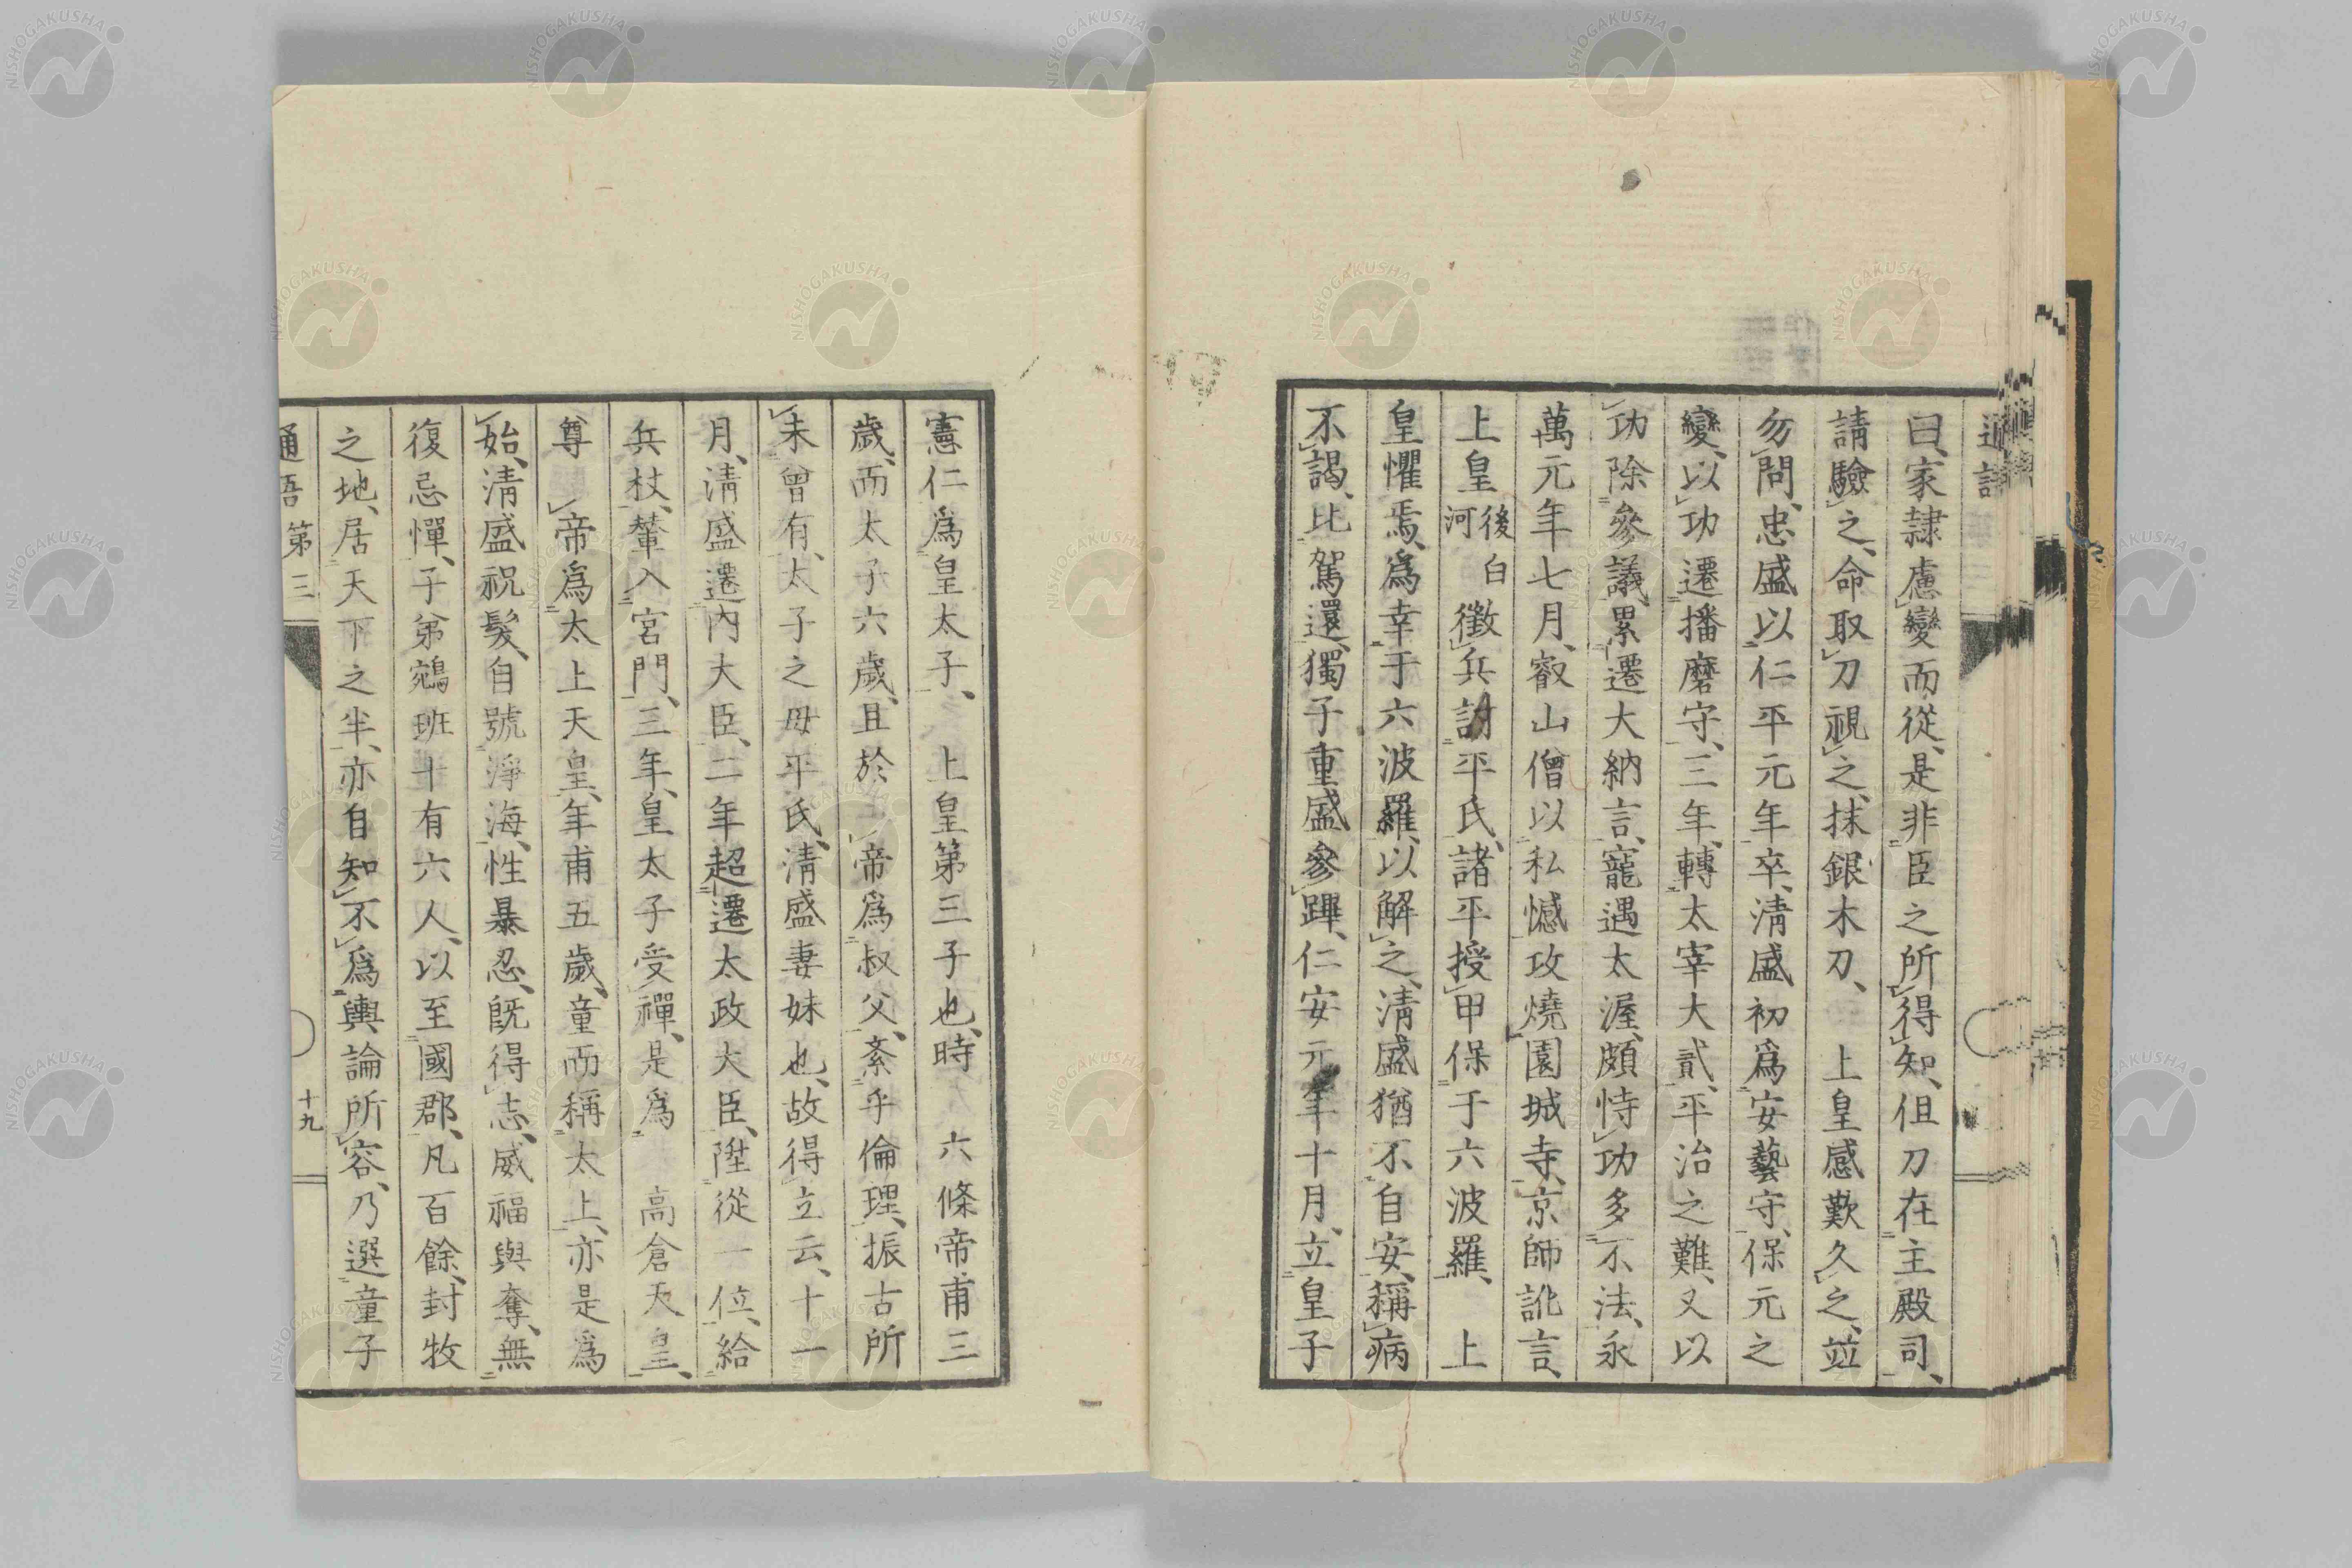 曰、家隷慮變而從、是非臣之所得知、但刀在主殿司、
請驗之、命取刀視之、抹銀木刀、 上皇感歎久之、竝
勿問、忠盛以仁平元年卒、淸盛初爲安藝守、保元之
變、以功遷播磨守、三年、轉太宰大貳、平治之難、又以
功除參議、累遷大納言、寵遇太渥、頗恃功多不法、永
萬元年七月、叡山僧以私憾攻燒園城寺、京師訛言、
上皇後白河徵兵討平氏、諸平授甲保于六波羅、 上
皇懼焉、爲幸于六波羅、以解之、淸盛猶不自安、稱病
不謁、比駕還、獨子重盛參蹕、仁安元年十月、立皇子
憲仁爲皇太子、 上皇第三子也、時 六條帝甫三
歲、而太子六歲、且於 帝爲叔父、紊乎倫理、振古所
未曾有、太子之母平氏、淸盛妻妹也、故得立云、十一
月、淸盛遷內大臣、二年超遷太政大臣、陞從一位、給
兵杖、輦入宮門、三年、皇太子受禪、是爲 高倉天皇、
尊 帝爲太上天皇、年甫五歲、童而稱太上、亦是爲
始、淸盛祝髮、自號淨海、性暴忍、旣得志、威福與奪、無
復忌憚、子弟鵷班十有六人、以至國郡、凡百餘、封牧
之地、居天下之半、亦自知不爲輿論所容、乃選童子
通語第三
十九
NISHOGAKUSHA